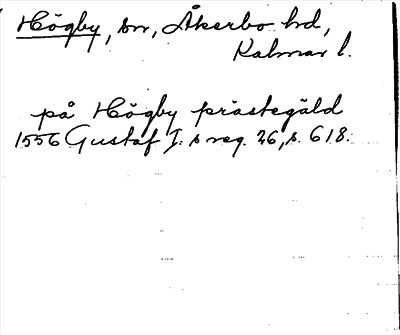 Högby, sn, Åkerbo hd,
Kalmar l.
på Högby prästegäld
1556 Gustaf I. s reg. 26, s. 618.